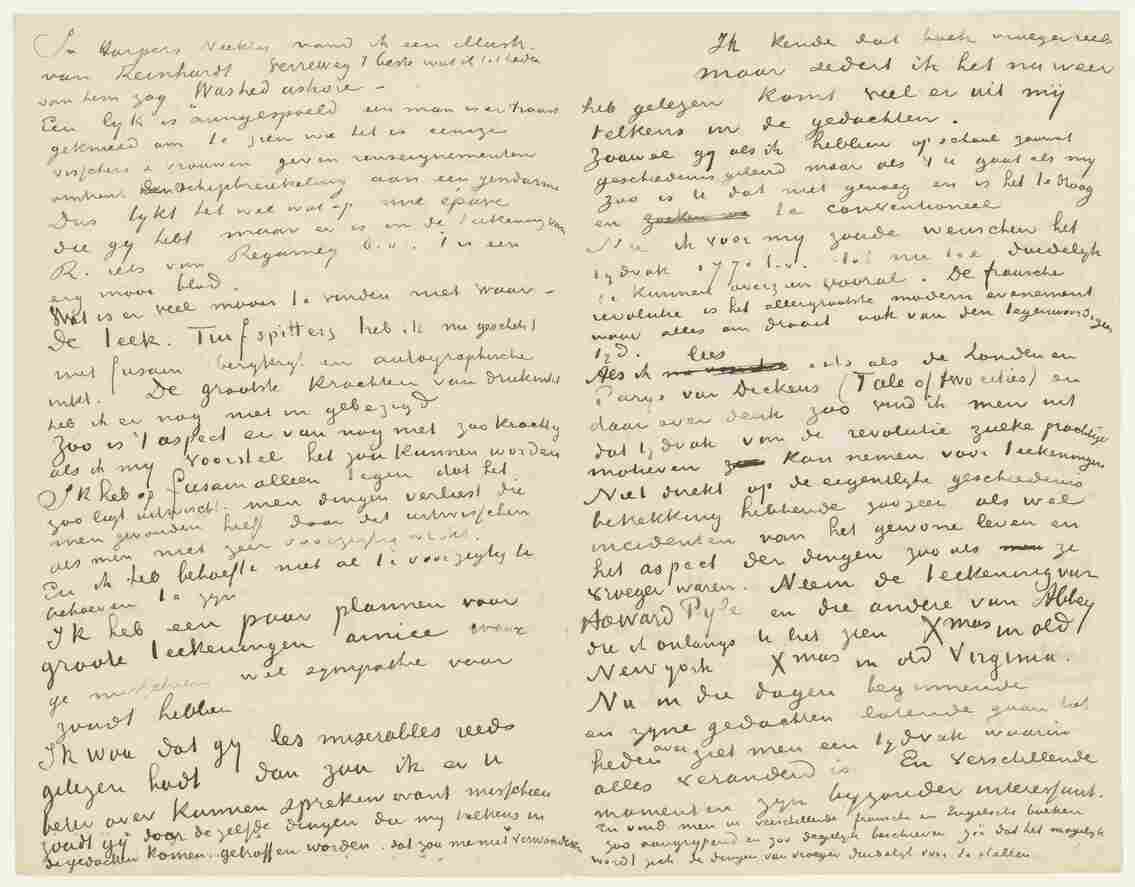 In Harpers Weekly vond ik een illustr.
van Reinhardt verreweg 't beste wat ik tot heden
van hem zag Washed ashore –
Een lijk is aangespoeld een man is er naast
geknield om te zien wie het is eenige
visschers & vrouwen geven renseignementen
omtrent den schipbreukeling aan een gendarme
Dus lijkt het wel wat op une épave
die gij hebt maar er is in de teekening van
R. iets van Regamey b.v. 't is een
erg mooi blad.
Wat is er veel moois te vinden niet waar –
De teek. Turfspitters heb ik nu geschetst
met fusain bergkrijt en autographische
inkt. De grootste krachten van drukinkt
heb ik er nog niet in gebezigd
zoo is 't aspect er van nog niet zoo krachtig
als ik mij voorstel het zou kunnen worden
Ik heb op fusain alleen tegen dat het
zoo ligt uitwischt. men dingen verliest die
men gevonden heeft door dat uitwisschen
als men niet zeer voorzigtig werkt.
En ik heb behoefte niet al te voorzigtig te
behoeven te zijn
Ik heb een paar plannen voor
groote teekeningen amice waar
ge misschien wel sympathie voor
zoudt hebben
Ik wou dat gij les miserables reeds
gelezen hadt dan zou ik er u
beter over kunnen spreken want misschien
zoudt gij door dezelfde dingen die mij telkens in
de gedachten komen getroffen worden. dat zou me niet verwonderen
Ik kende dat boek vroeger reeds
maar sedert ik het nu weer
heb gelezen komt veel er uit mij
telkens in de gedachten.
Zoowel gij als ik hebben op school zoowat
geschiedenis geleerd maar als 't u gaat als mij
zoo is u dat niet genoeg en is het te droog
en te conventioneel
Nu ik voor mij zoude wenschen het
tijdvak 1770 b.v. tot nu toe duidelijk
te kunnen overzien vooral. De fransche
revolutie is het allergrootste modern evenement
waar alles om draait ook van den tegenwoordigen
tijd.
Als ik lees iets als de Londen en
Parys van Dickens (Tale of two cities) en
daar over denk zoo vind ik men uit
dat tijdvak van de revolutie zulke prachtige
motieven kan nemen voor teekeningen
Niet direkt op de eigentlijke geschiedenis
betrekking hebbende zoozeer als wel
incidenten van het gewone leven en
het aspect der dingen zoo als ze
vroeger waren. Neem de teekening van
Howard Pyle en die andere van Abbey
die ik onlangs u liet zien Xmas in old
New york Xmas in old Virginia.
Nu in die dagen beginnende
en zijne gedachten latende gaan tot
heden over ziet men een tijdvak waarin
alles veranderd is. En verschillende
momenten zijn bijzonder interessant.
En vind men in verschillende fransche en Engelsche boeken
zoo aangrijpend en zoo degelijk beschreven zóó dat het mogelijk
wordt zich de dingen van vroeger duidelijk voor te stellen